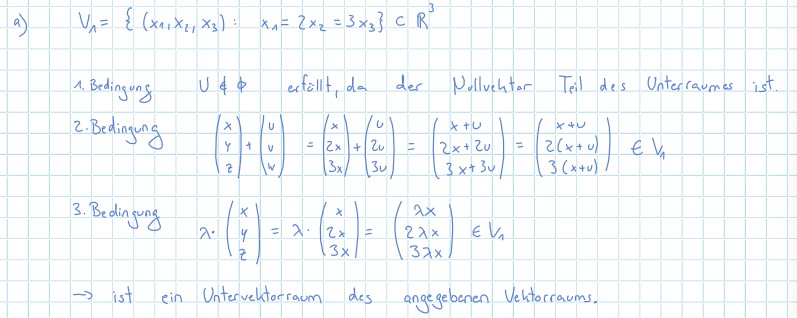 a) V₁ = { (x₁, x₂, x₃) : x₁ = 2x₂ = 3x₃} ⊂ ℝ³
1. Bedingung U ∉ ϕ erfüllt, da der Nullvektor Teil des Unterraumes ist.
2. Bedingung (x y z) + (u v w) = (x 2x 3x) + (u 2u 3u) = (x+u 2x+2u 3x+3u) = (x+u 2(x+u) 3(x+u)) ∈ V₁
3. Bedingung λ · (x y z) = λ · (x 2x 3x) = (λx 2λx 3λx) ∈ V₁
→ ist ein Untervektorraum des angegebenen Vektorraums.